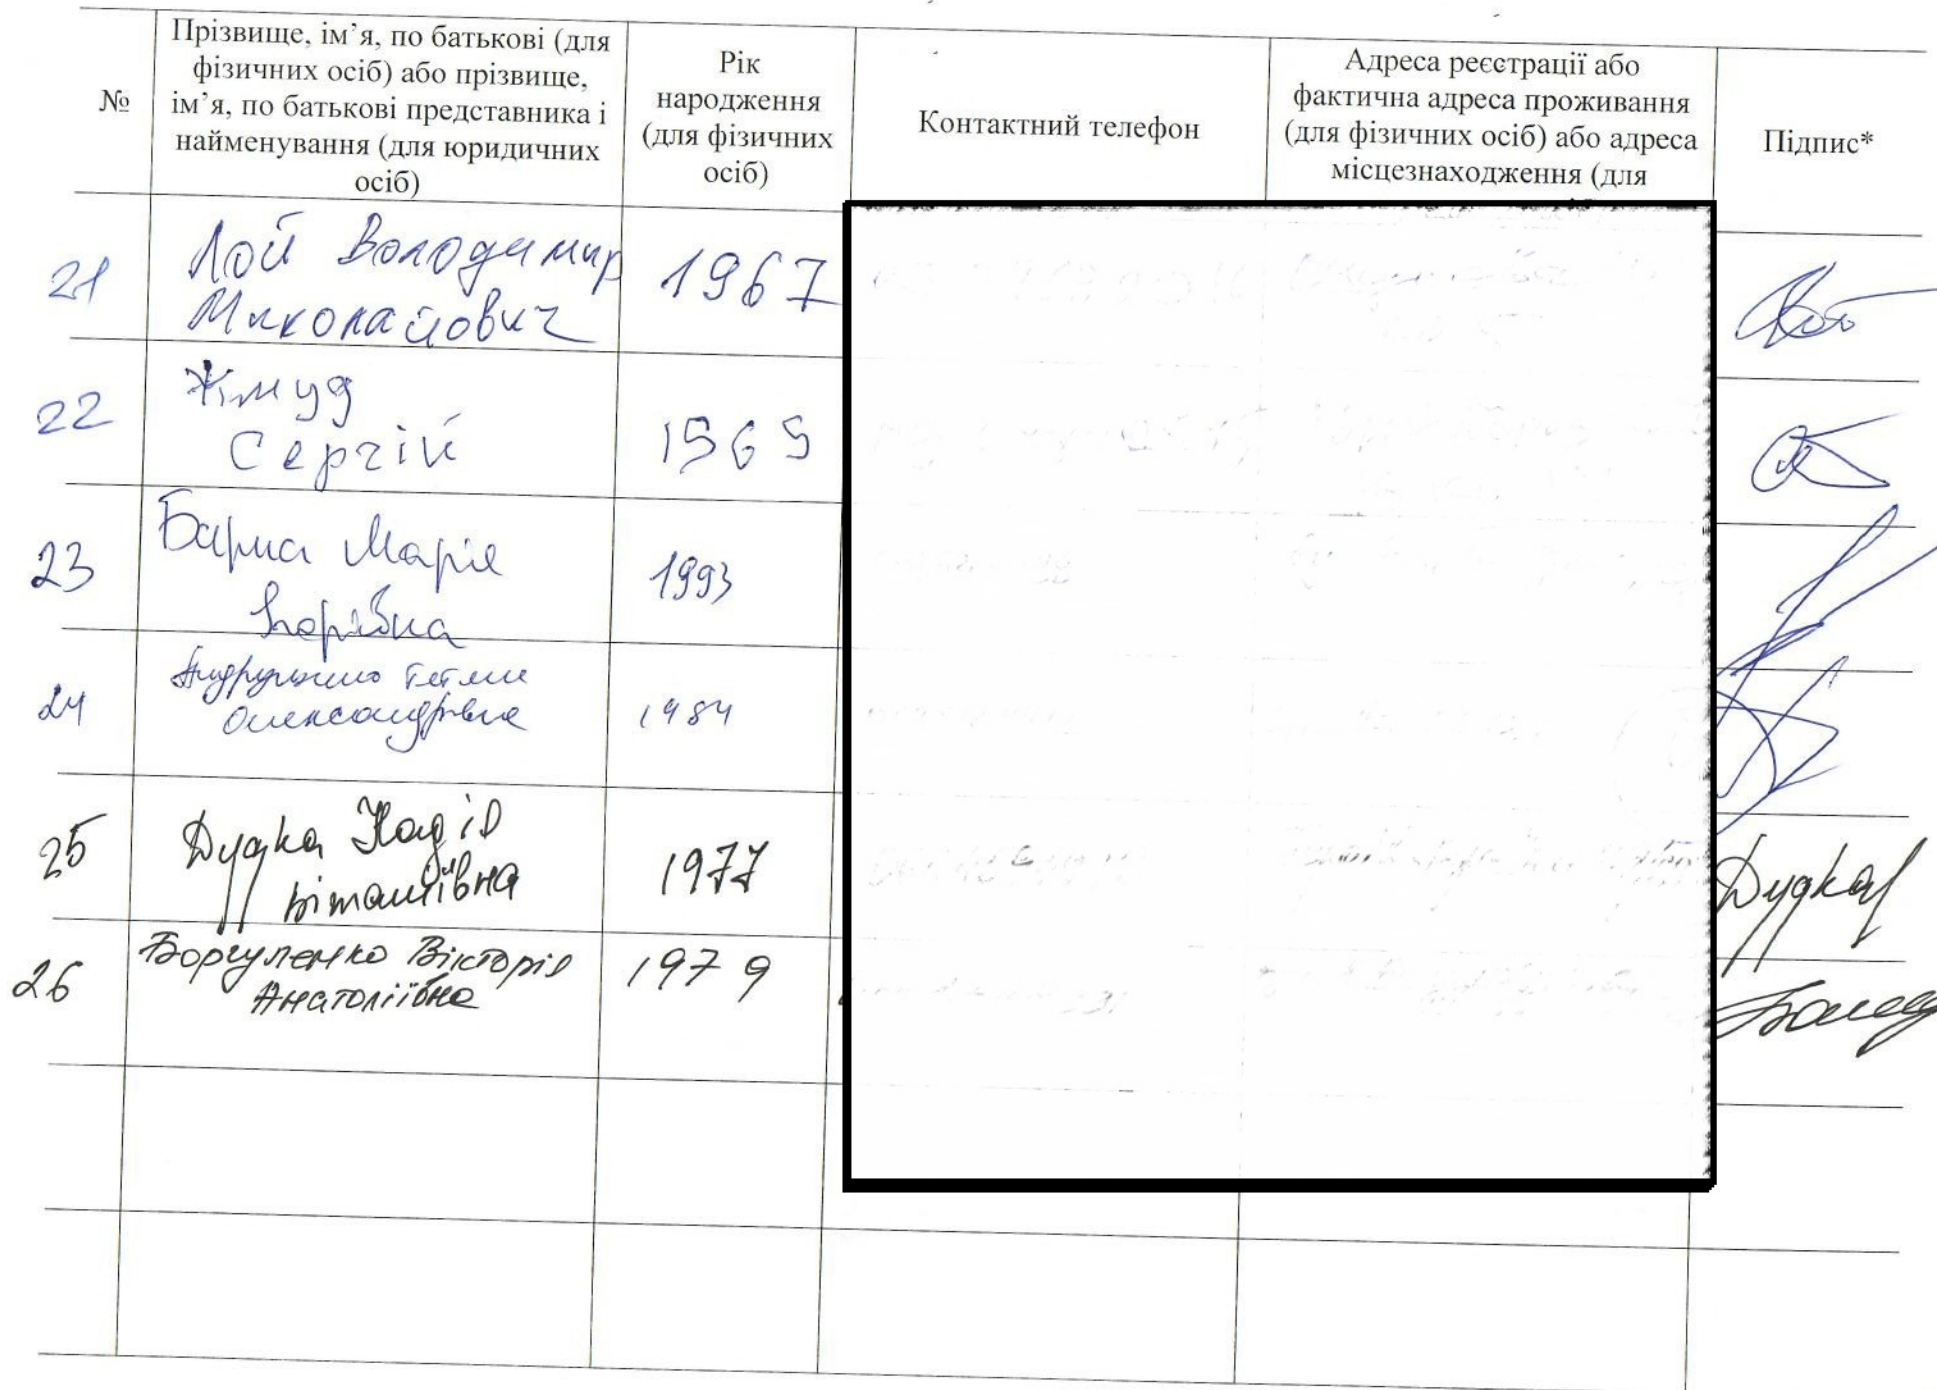 №
Прізвище, ім’я, по батькові (для
фізичних осіб) або прізвище,
ім’я, по батькові представника і
найменування (для юридичних
осіб)
Рік
народження
(для фізичних
осіб)
Контактний телефон
Адреса реєстрації або
фактична адреса проживання
(для фізичних осіб) або адреса
місцезнаходження (для
Підпис*
21
Лой Володимир
Миколайович
1967
22
Жмуд
Сергій
1969
23
Барма Марія
Ігорівна
1993
24
Тетяна
Олександрівна
1984
25
Дудка Надія
Віталіївна
1977
Дудка
26
Боргуленко Вікторія
Анатоліївна
1979